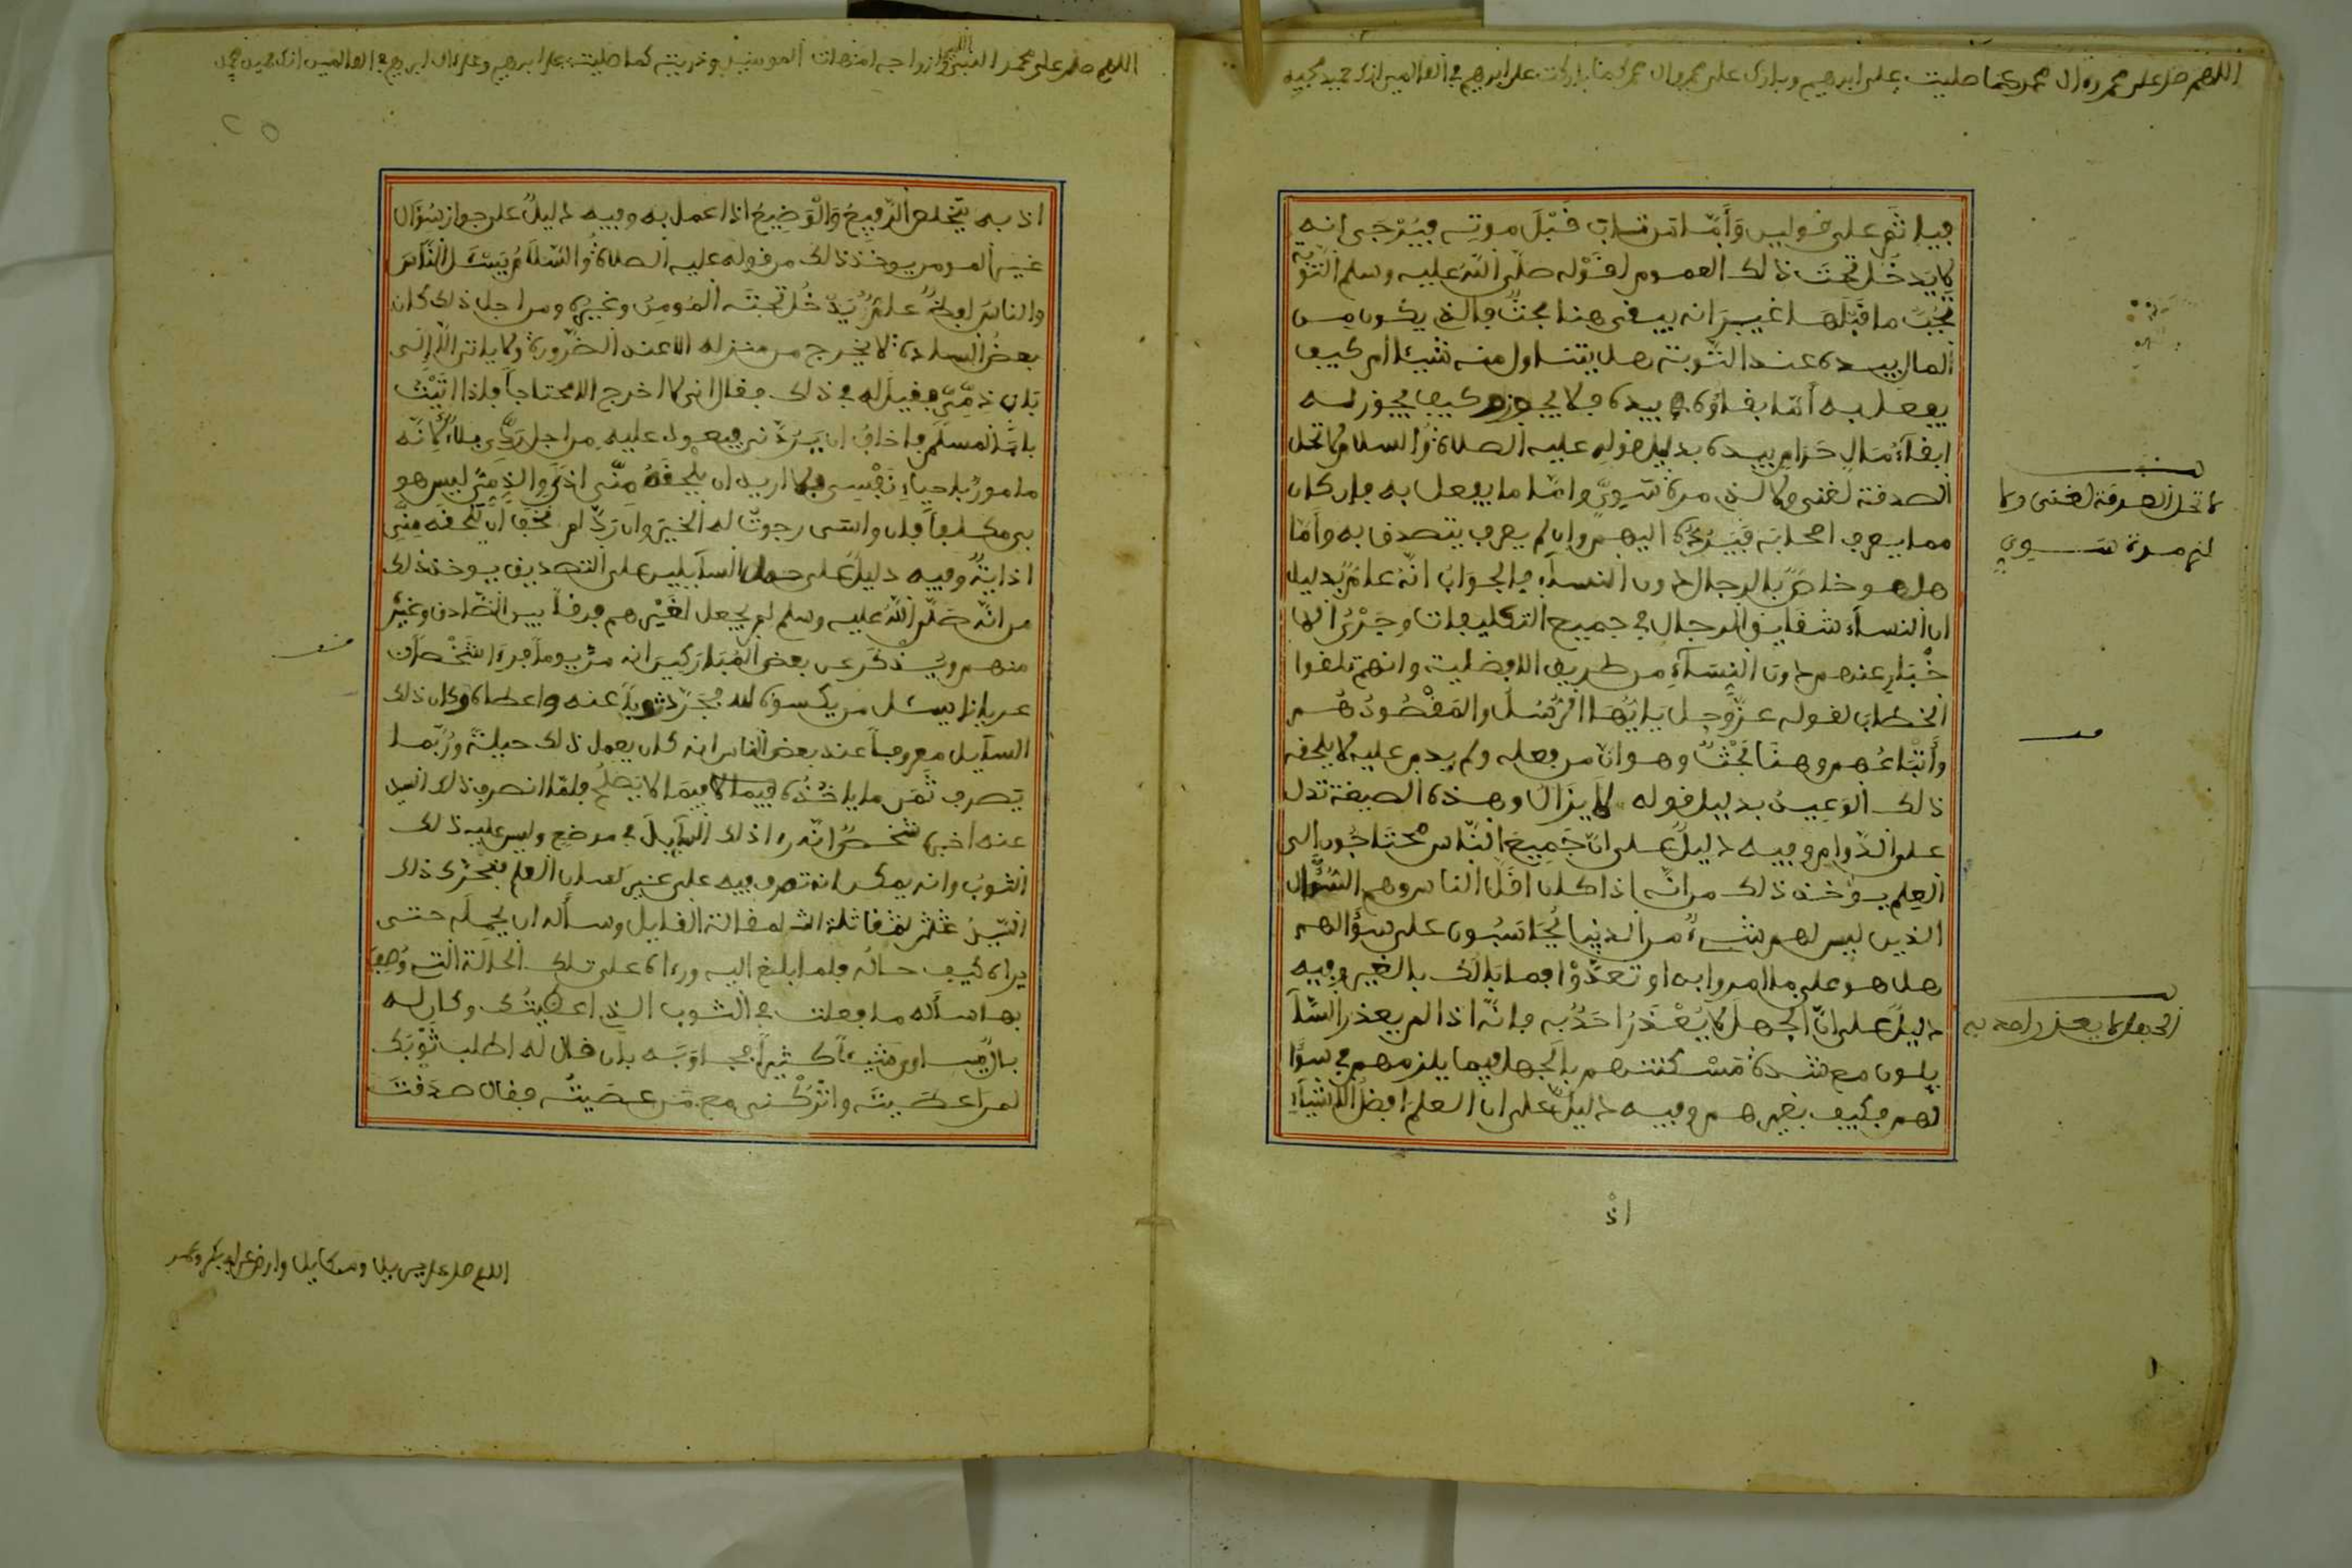 اللهم صل على محمد وءال محمد كما صليت على ابراهيم وبارك على محمد وءال محمد كما باركت على ابراهيم في العالمين انك حميد مجيد
فياثم على قولين وَأمّا من تاب قَبْلَ موته فيُرْجَى انه
لا يَدخُل تحتَ ذلك العموم لقَوْله صلّى اللّه عليه وسلم التوبة
تجُبّ ما قَبْلَها غير انه يبقى هنا بحثٌ فالذي يكون من
المال بيده عند التّوبة هل يتناول منه شيئا ام كيف
يفعل به أمّا بقاؤه في يده فلا يجوز وكيف يجوز له
ابقآءُ مَالٍ حَرَامٍ بيده بدليل قوله عليه الصلاةُ والسلام لا تحل
الصدقة لغنى ولا لذى مرة سَوِىّ وامّا ما يفعل به فان كان
مما يعرف اصحابَه فيَرُدُّه اليهم وان لم يعرف يتصدق به وأمّا
هل هو خاصٌ بالرجال دون النسآء فالجوَابُ انّهُ عامٌ بدليل
ان النسآء شقايق الرجال في جميع التكليفات وجَرْىُ الا
خْبَار عنهم دون النِسَآء من طريق الافضلية وانهم تلقوا
الخطاب لقوله عزّ وجل يَايُّهَا الرُّسُل والمَقْصُودُ هُم
وأَتْبَاعُهم وهنَا بَحْثٌ وهو انّ من فعله ولم يدم عليه لا يلحقه
ذلك الوَعِيدُ بدليل قوله لا يزالُ وهذه الصيغة تدل
على الدّوام وفيه دليلٌ على انّ جَمِيعَ النّاس محتَاجُون الى
العِلم يوخذ ذلك من انّه اذا كان اقلّ الناس وهم السُّؤَّال
الذين ليس لهم شىءٌ من الدنيا يُحَاسَبُون على سؤالهم
هل هو على ما امروا به او تعدَّوْا فما بَالُك بالغير وفيه
دليلٌ على انّ الجهلَ لا يُعْذَرُ احَدٌ به فانّه اذا لم يعذر السّآ
يلون مع شدة مَسْكنتهم بالجهل فيما يلزمهم في سؤا
لهم فكيف بغيرهم وفيه دليلٌ على ان العلمَ افضلُ الاشيآء
اذْ
لا تحل الصدقة لغنى ولا
لذى مرة سَوِىٍّ
قف
الجهل لا يعذر احد به
اللهم صل على محمد النبي وازواجه امهات المومنين وذريته كما صليت على ابراهيم وعلى ءال ابراهيم في العالمين انك حميد مجيد
٢٥
اذ به يتخلص الرّفِيعُ وَالْوَضِيعُ اذا عمل به وفيه دليلٌ على جواز سُؤَال
غير المومن يوخذ ذلك من قوله عليه الصلاةُ والسّلَامُ يَسْئَل النَّاسَ
والناسُ لفظٌ عامٌّ يَدْخُل تحتَه المُومِنُ وغيره ومن اجل ذلك كان
بعضُ السادة لا يخرج من منزله الا عند الضّرُورة ولا ياتى الا الى
بَاب ذِمِّىّ فقيل له في ذلك فقال انى لا اخرج الا محتاجاً فاذا اتَيْتُ
بابَ المسلم فاخافُ ان يَرُدَّنى فيعود عليه من اجل رَدِّى بلآءٌ لانّه
مامورٌ باحياءِ نَفْسِى ولا اريد ان يلْحَقَهُ مِنّى اذىً والذِّمِّىُّ ليس هو
بى مكلفاً فان واسَى رجوتُ له الخيرَ وان رَدَّ لم نخَف أن تَلحقَه مِنّى
اذايَةٌ وفيه دليلٌ على حمل السآيلين على التصديق يوخذ ذلك
من انّه صَلّى اللّهُ عليه وسلم لم يجعل لغَيْرهم فرقاً بين الصّادق وغَيْر
منهم ويُذكَر عن بعض المُبَاركين انه مرّ يوماً فرءا شخْصاً
عرياناً يسئل من يكسوه لله فجَرّد ثوباً عنه واعطاه وكان ذلك
السآيل معروفاً عند بعض الناس انه كان يعمل ذلك حيلةً ورُبّما
يَصرف ثَمَن ما ياخُذُه فيما لا يَصْلُحُ فلمّا انصرف ذلك السيد
عنه اخبره شخصٌ انّه رءا ذلك السآيلَ في موضع وليس عليه ذلك
الثوبُ وانه يمكن انه تصرف فيه على غير لسان العلم فتحرّك ذلك
يراه كيف حالُه فلما ابلغ اليه ورءاه على تلك الحالة التى وُصِفَ
بها سأله ما فعلت في الثوب الذى اعطيتُك وكان له
بان قال له اطلب ثَوْبَك
لمن اعطيتَه واتْرُكْنى مع مَن عصَيتُه فقال صدَقتَ
قف
اللهم صل على جبريل وميكايل وارض عن ابى بكر وعمر